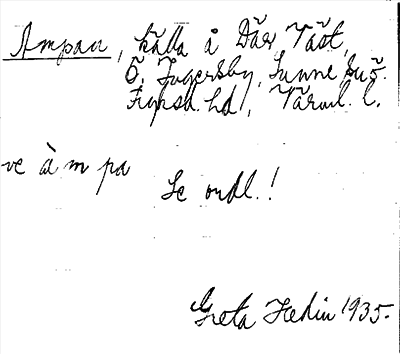 Ampan, källa å Där Täst,
Ö. Ingersby, Sunne sn.
Fryksd. hd, Värml. l.
ve àm pa
Se ordl.!
Greta Hedin 1935.